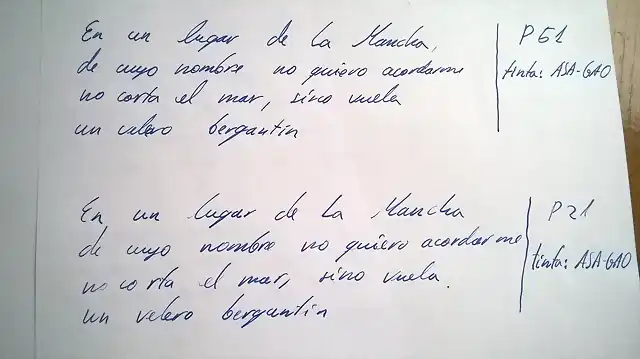 En un lugar de La Mancha,
de cuyo nombre no quiero acordarme
no corta el mar, sino vuela
un velero bergantín
P 51
tinta: ASA-GAO
En un lugar de La Mancha
de cuyo nombre no quiero acordarme
no corta el mar, sino vuela.
un velero bergantín
P 21
tinta: ASA-GAO